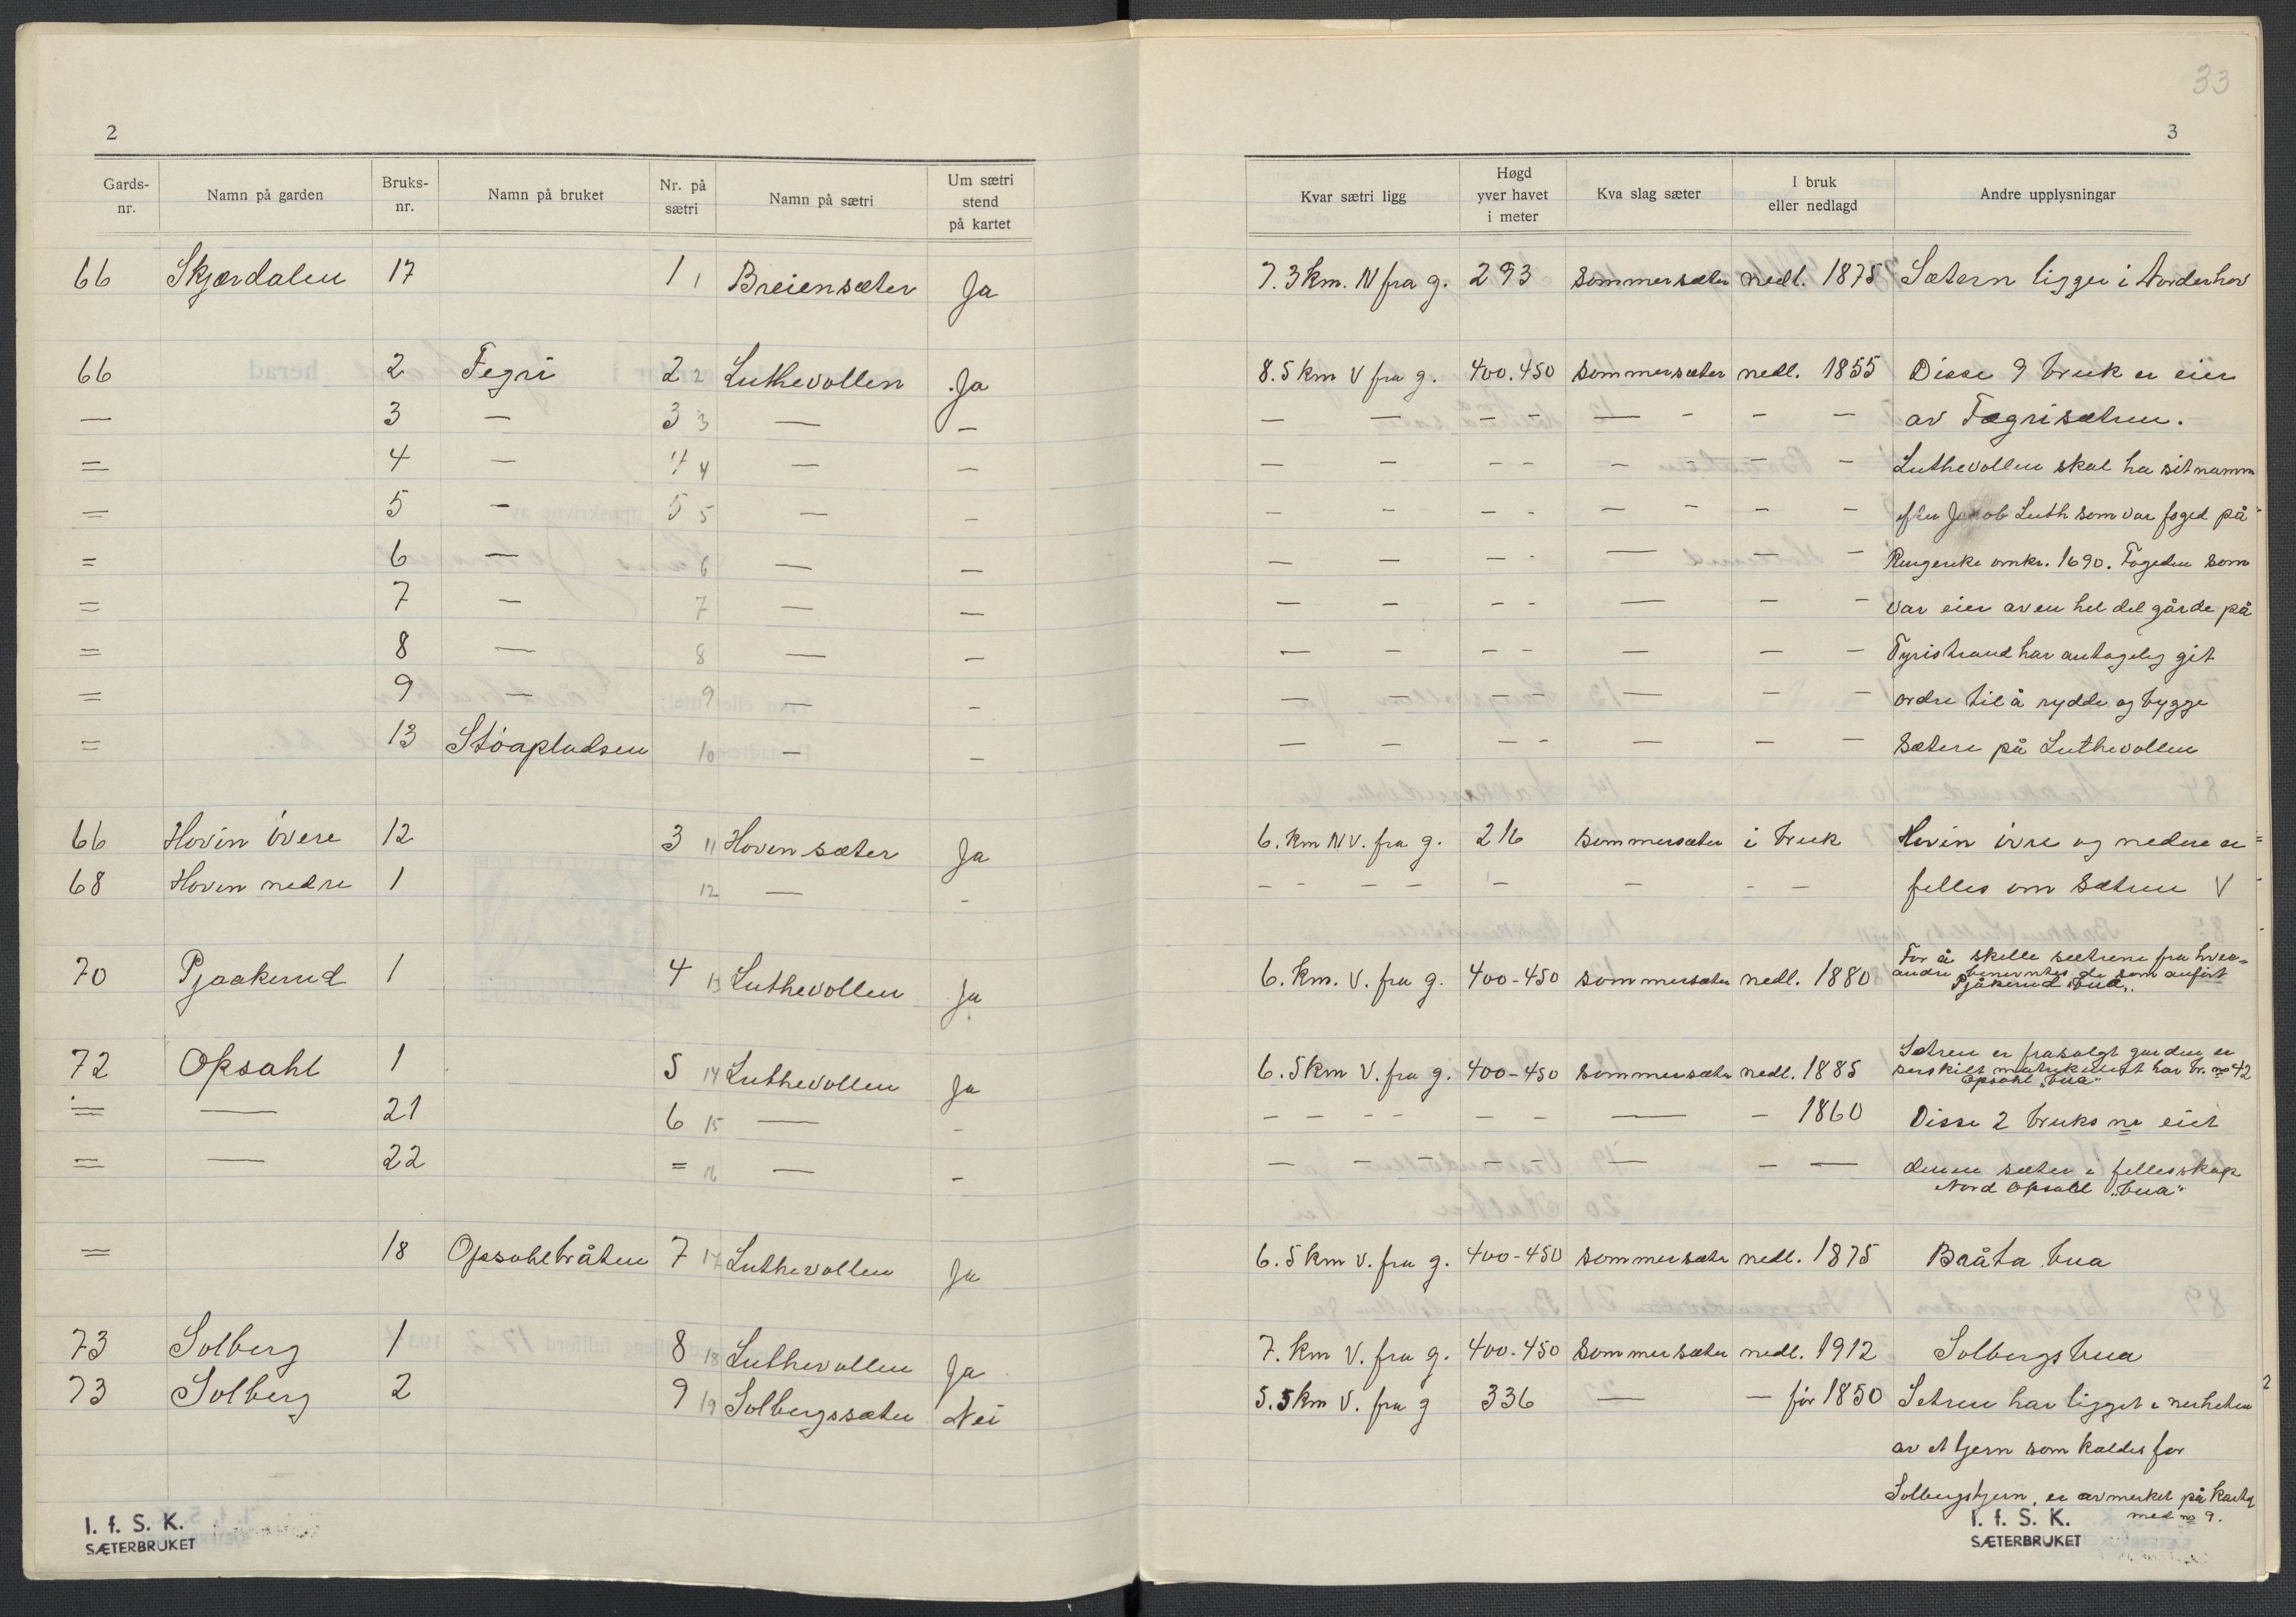 33
2
Gards-nr. Namn på garden Bruks-nr. Namn på bruket Nr. på sætri Namn på sætri Um sætri stend på kartet
66 Skjærdalen 17 1 1 Breiensæter Ja
66 2 Fegri 2 2 Luthevollen Ja
— 3 — 3 3 — —
= 4 — 4 4 — —
= 5 - 5 5 — —
= 6 — 6 — —
= 7 — 7 — —
= 8 — 8 — —
= 9 — 9 — -
= 13 Stöapladsen 10 — —
66 Hovin övere 12 3 11 Hovinsæter Ja
68 Hovin nedre 1 12 — -
70 Pjaakerud 1 4 13 Luthevollen Ja
72 Opsahl 1 5 14 Luthevollen Ja
= — 21 6 15 — -
= — 22 = 16 — -
= 18 Opsahlbråten 7 17 Luthevollen Ja
73 Solberg 1 8 18 Luthevollen Ja
73 Solberg 2 9 19 Solbergssæter Nei
I. f. S. K.
SÆTERBRUKET
3
Kvar sætri ligg Høgd yver havet i meter Kva slag sæter I bruk eller nedlagd Andre upplysningar
7.3 km. N fra g. 293 sommersæter nedl. 1875 Sætern ligger i Norderhov
8.5 km V fra g. 400.450 sommersæter nedl. 1855 Disse 9 bruk er eier
— — - - — - - — av Fægrisætren.
— — - - - - - — Luthevollen skal ha sit namn
- — - - — - - — efter Jakob Luth som var foged på
— — - - — — - Ringerike omkr. 1690. Fogeden som
— — - - — — - var eier av en hel del gårde på
— — - - — — - Tyristrand har antagelig git
— — - - — - - ordre til å rydde og bygge
— — - - — — — sætere på Luthevollen
6. km NV. fra g. 216 sommersæter i bruk Hovin övre og nedre er
- - - - - - - - felles om sætren V
6. km. V. fra g. 400-450 sommersæter nedl. 1880 For å skille sætrene fra hver-
andre benevntes de som anfört
Pjåkerud "bua".
6.5km V. fra g. 400-450 sommersæter nedl. 1885 Setren er frasolgt garden er
serskilt matrikulert har br. no 42
Opsahl "bua"
- - - - - - — - 1860 Disse 2 bruks no eiet
- - - - - — - — denne sæter i fellesskap
Nord Opsahl "bua"
6.5 km V. fra g. 400-450 sommersæter nedl. 1875 Bråta bua
7. km V. fra g. 400-450 sommersæter nedl. 1912 Solbergsbua
5.5 km V. fra g 336 — — för 1850 Setren har ligget i nerheten
av et tjern som kaldes for
Solbergstjern, er avmerket på kartet
med no 9.
I. f. S. K.
SÆTERBRUKET